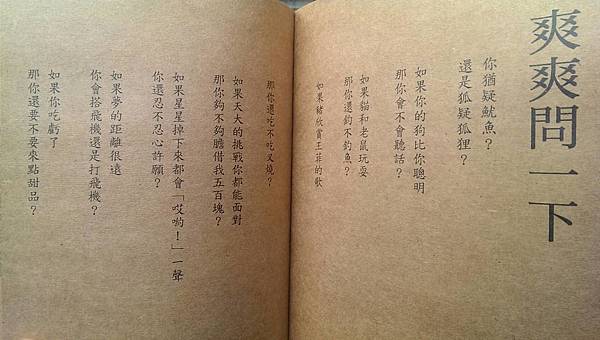 爽爽問一下
你猶疑魷魚？
還是狐疑狐狸？
如果你的狗比你聰明
那你會不會聽話？
如果貓和老鼠玩耍
那你還釣不釣魚？
如果豬欣賞王菲的歌
那你還吃不吃叉燒？
如果天大的挑戰你都能面對
那你夠不夠膽借我五百塊？
如果星星掉下來都會「哎喲！」一聲
你還忍不忍心許願？
如果夢的距離很遠
你會搭飛機還是打飛機？
如果你吃虧了
那你還要不要來點甜品？